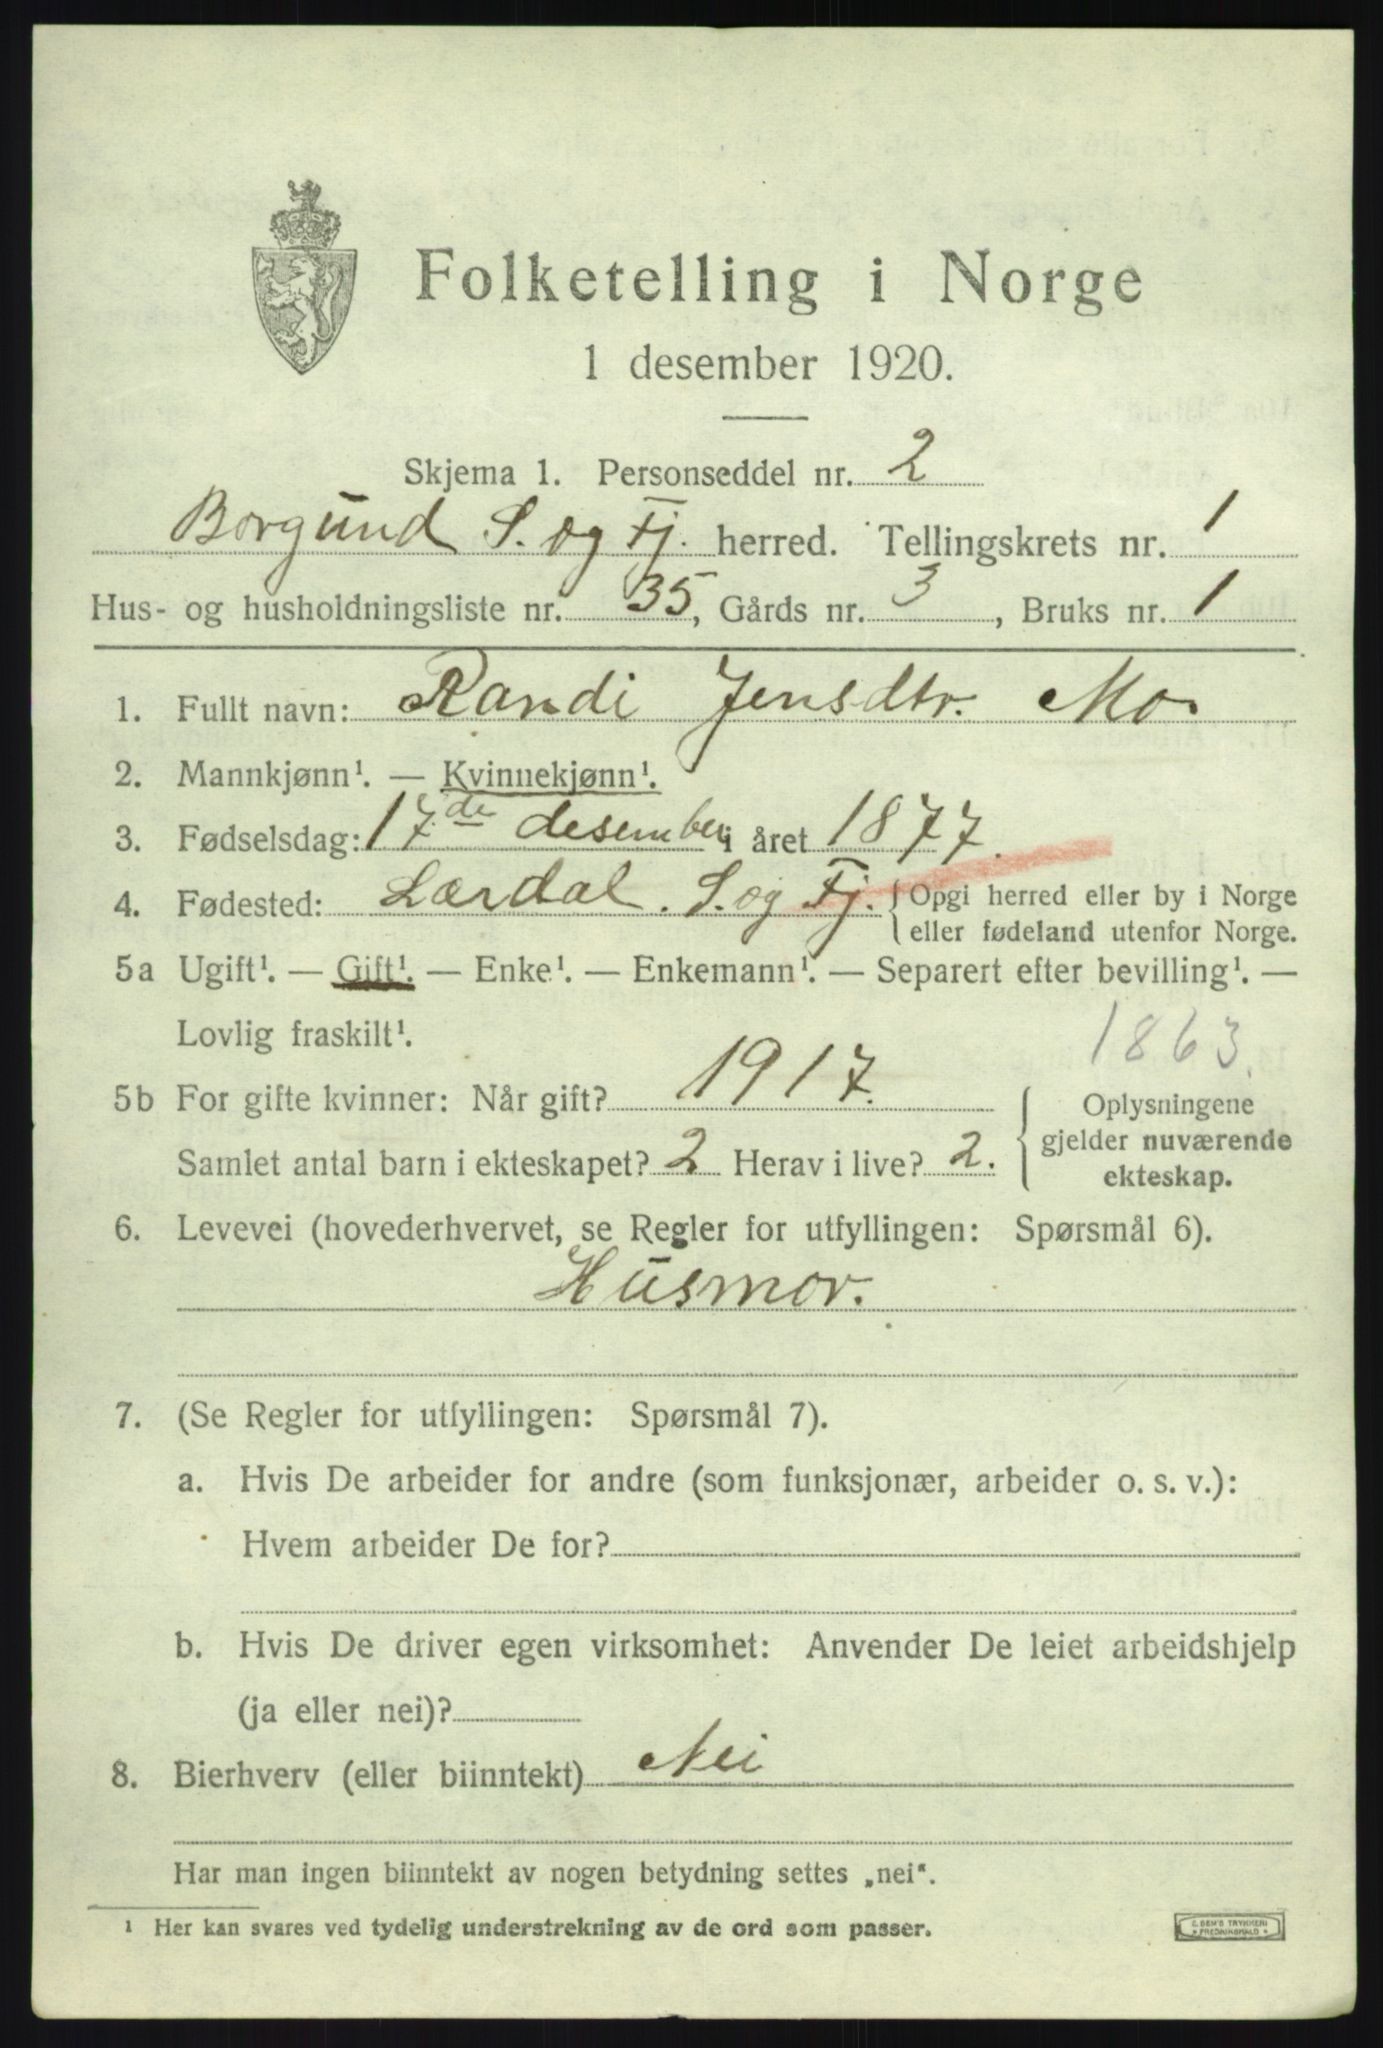 Folketelling i Norge
1 desember 1920.
Skjema 1. Personseddel nr. 2
Borgund S. og Fj. herred. Tellingskrets nr. 1
Hus- og husholdningsliste nr. 35, Gårds nr. 3, Bruks nr. 1
1. Fullt navn: Randi Jensdtr. Mo
2. Mannkjønn¹. — Kvinnekjønn¹.
3. Fødselsdag: 17de desember i året 1877.
4. Fødested: Lærdal. S. og Fj. { Opgi herred eller by i Norge
eller fødeland utenfor Norge.
5a Ugift¹. — Gift¹. — Enke¹. — Enkemann¹. — Separert efter bevilling¹. —
Lovlig fraskilt¹. 1863.
5b For gifte kvinner: Når gift? 1917. { Oplysningene
gjelder nuværende
ekteskap.
Samlet antal barn i ekteskapet? 2 Herav i live? 2.
6. Levevei (hovederhvervet, se Regler for utfyllingen: Spørsmål 6).
Husmor.
7. (Se Regler for utfyllingen: Spørsmål 7).
a. Hvis De arbeider for andre (som funksjonær, arbeider o. s. v.):
Hvem arbeider De for?
b. Hvis De driver egen virksomhet: Anvender De leiet arbeidshjelp
(ja eller nei)?
8. Bierhverv (eller biinntekt) Nei
Har man ingen biinntekt av nogen betydning settes „nei“.
¹ Her kan svares ved tydelig understrekning av de ord som passer.
E. SEM'S TRYKKERI
* FREDRIKSHALD *